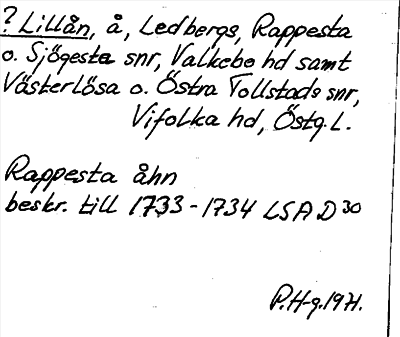 ? Lillån, å, Ledbergs, Rappesta
o. Sjögesta snr, Valkebo hd samt
Västerlösa o. Östra Tollstads snr,
Vifolka hd, Östg.L.
Rappesta åhn
beskr. till 1733-1734 LSA D30
P.H-g.1971.